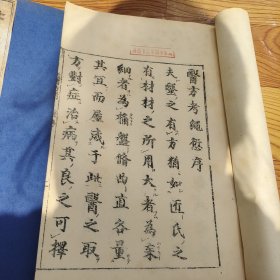 醫方考繩愆序
夫醫之有方猶如匠氏之
有材材之所用大者為棄
細者為桶盤脩曲直各量
其宜而屋成于此醫之取
方對症治病其良之可擇